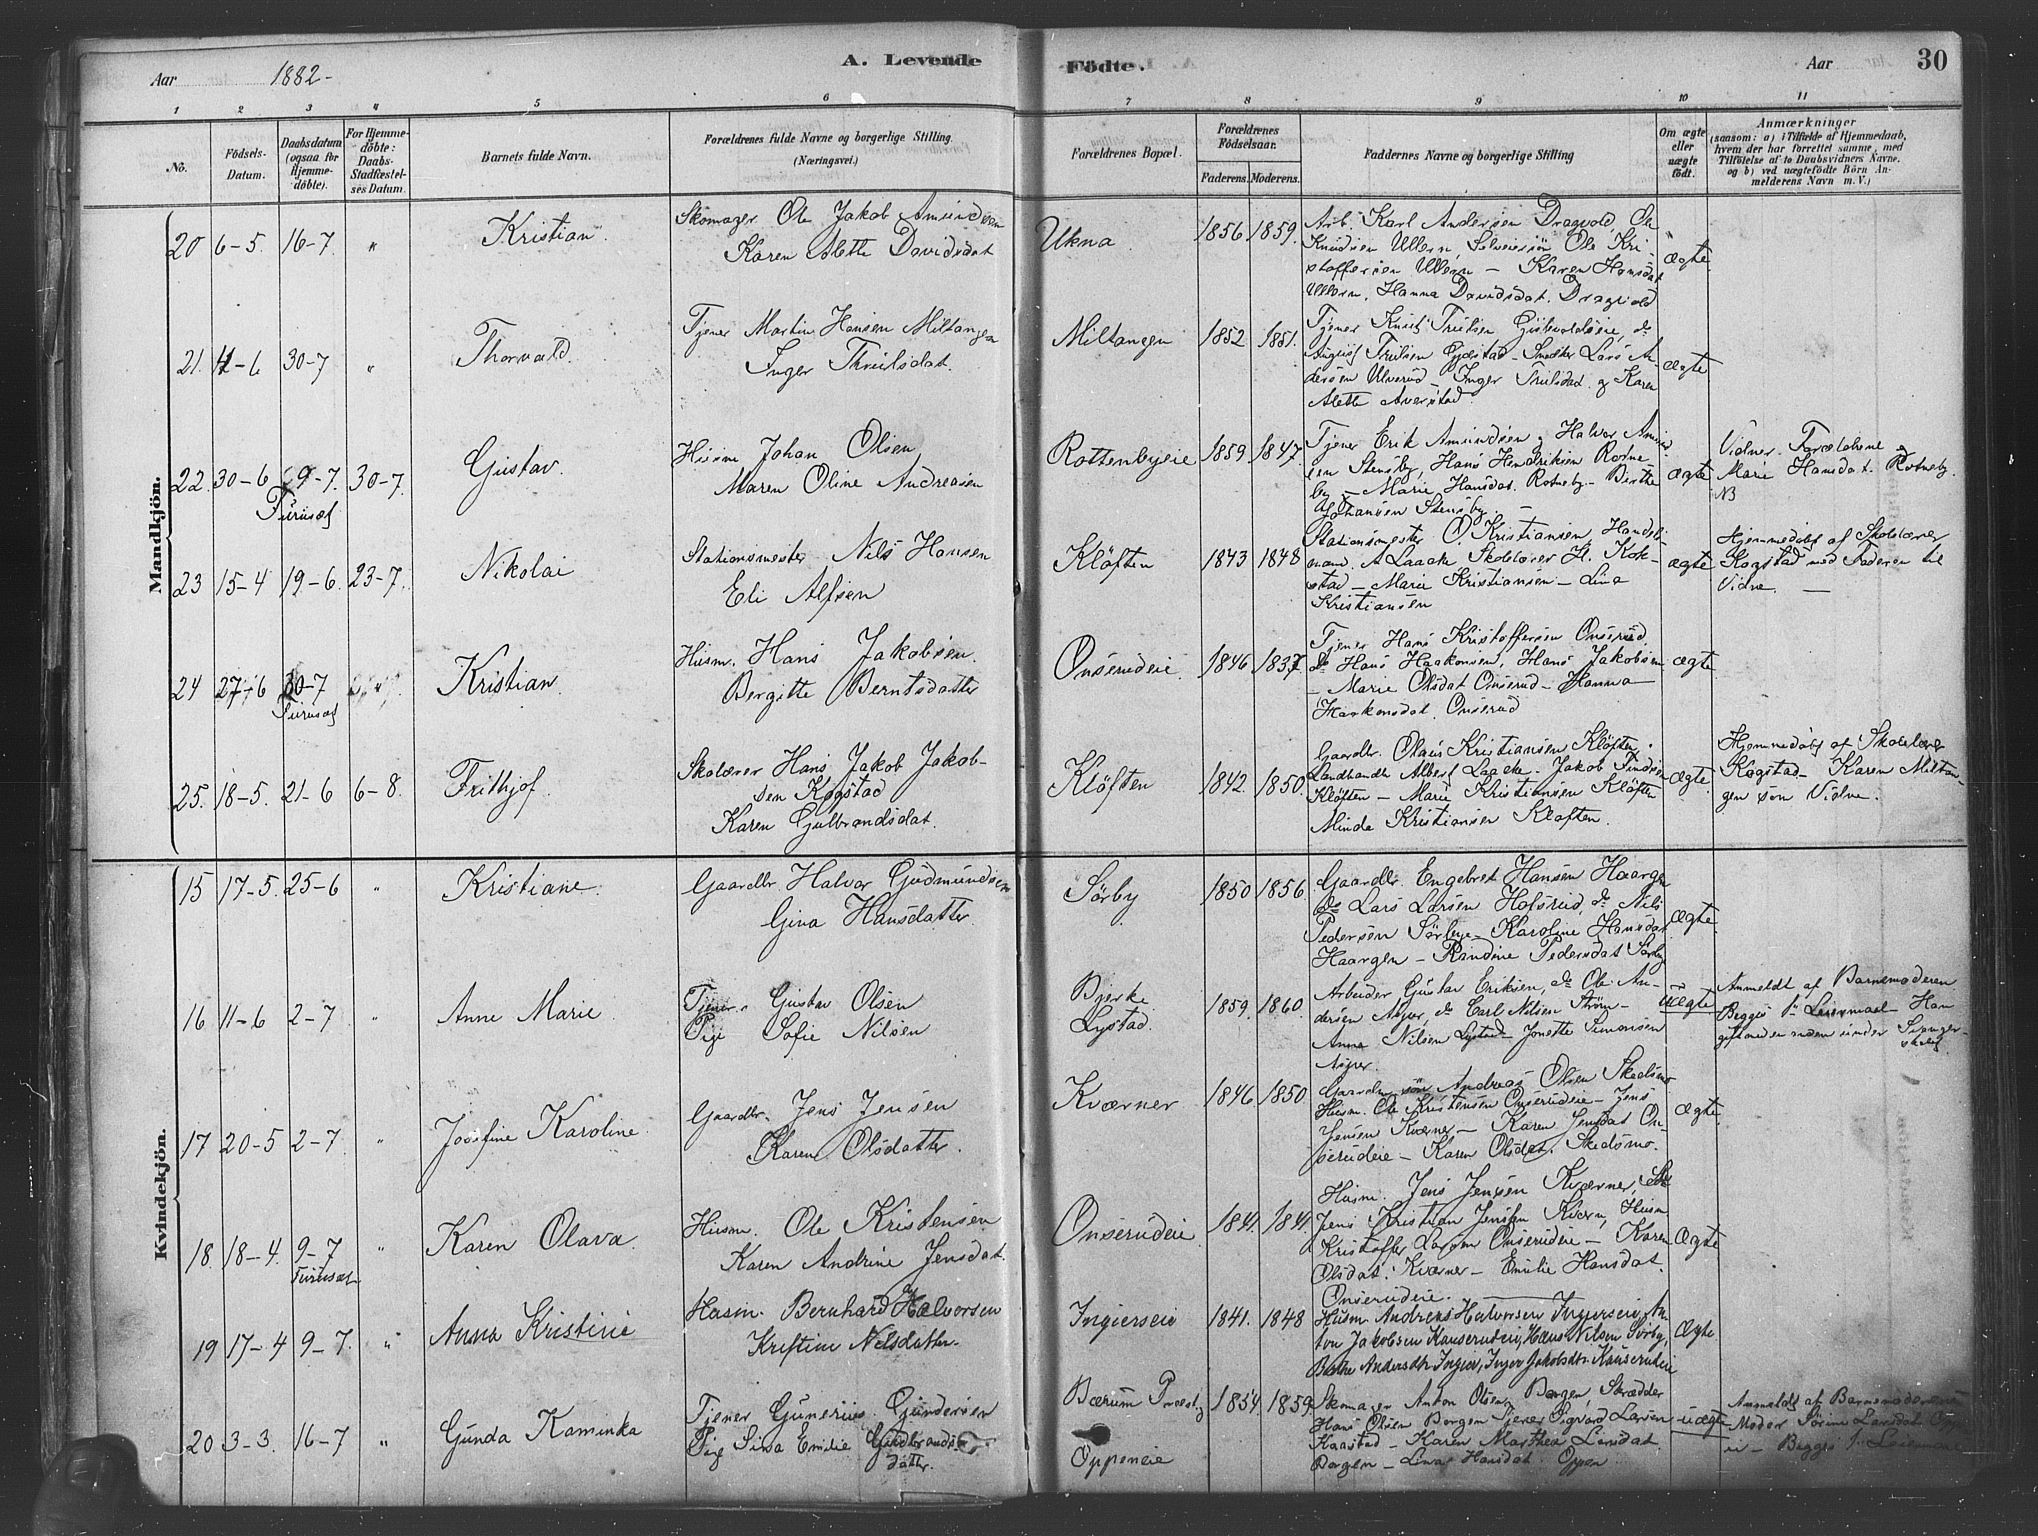 Aar 1882-
A. Levende
Födte.
Aar
30
1 2 3 4 5 6 7 8 9 10 11
No.
Födsels-
Datum.
Daabsdatum
(ogsaa for
Hjemme-
döbte).
For Hjemme-
döbte:
Daabs-
Stadfæstel-
ses Datum.
Barnets fulde Navn.
Forældrenes fulde Navne og borgerlige Stilling.
(Næringsvei.)
Forældrenes Bopæl.
Forældrenes
Födselsaar.
Faderens. Moderens.
Faddernes Navne og borgerlige Stilling
Om ægte
eller
uægte
födt.
Anmærkninger
(saasom: a) i Tilfælde af Hjemmedaab,
hvem der har forrettet samme, med
Tilföielse af to Daabsvidners Navne,
og b) ved uægtefödte Börn An-
melderens Navn m. V.)
Mandkjön.
20 6-5. 16-7 " Kristian.
Skomager Ole Jakob Amundsen
Karen Alette Davidsdat
Ukna. 1856 1859.
Arb. Karl Andersen Dragvold, Ole
Knudsen Ullern, Ole Kri-
stoffersen Ullern - Karen Hansdat
Ullern, Hanna Davidsdat. Dragvold
ægte
21. 4-6 30-7 " Thorvald.
Tjener Martin Hansen Miltangen
Inger Thrulsdat.
Miltangen 1852 1851.
Tjener Knut Trulsen
August Trulsen Gjestad - Snedker Lars An-
dersen Ulverud - Inger Trulsdat. og Karen
Alette
ægte
22. 30-6 9-7. 30-7. Gustav.
Furuset
Husm Johan Olsen
Maren Oline Andreasen
Rottenbyeie 1859 1847.
Tjener Erik Amundsen, Halvor Amund
sen Stensby, Hans Hendriksen Rotne
by - Marie Hansdat. Rotneby - Birthe
Johansen Stensby. -
ægte
Vidner Forældrene og
Marie Hansdat. Rotneby.
NB
23 15-4 19-6. 23-7. Nikolai
Stationsmester Nils Hansen
Eli Alfsen
Klöften 1843 1848
Stationsmester O. Kristiansen, Handels
mand. A Laache Skolelærer H. Kok-
stad - Marie Kristiansen - Lina
Kristiansen
ægte
Hjemmedöbt af Skolelærer
Kogstad med Faderen til
Vidne. -
24 27-6 30-7 Kristian.
Furuset
Husm. Hans Jakobsen.
Bergitte Berntsdatter
Onserudeie. 1846 1837
Tjener Hans Kristoffersen Onserud
do Hans Haakonsen, Hans Jakobsen
- Marie Olsdat Onserud - Hanna
Haakonsdat. Onserud
ægte
25. 18-5. 21-6 6-8. Frithjof
Skolærer Hans Jakob Jakob-
sen Kogstad
Karen Gulbrandsdat.
Klöften 1842. 1850.
Gaardbr. Olaus Kristiansen Klöften.
Landhandl. Albert Laache. Jakob
Klöften - Marie Kristiansen Klöften
Minda Kristiansen Klöften.
ægte.
Hjemmedöbt af Skolelærer
Kogstad - Karen Miltan-
gen som Vidne.
Kvindekjön.
15 17-5. 25-6 " Kristiane.
Gaardbr. Halvor Gudmundsen
Gina Hansdatter
Sörby 1850 1856
Gaardbr. Engebret Hansen Haargen
do Lars Larsen Holsrud, do Nils
Pedersen Sörbye - Karoline Hansdat
Haargen - Randine Pedersdat Sörby
ægte
16 11-6 2-7. " Anne Marie
Tjener Gustav Olsen
Pige Sofie Nilsen
Bjerke
Lystad. 1859. 1860.
Arbeider Gustav Eriksen, do Ole An-
dersen Asper, do Carl Nilsen Ström-
Anna Nilsen Lystad - Jonette Simonsen
uægte
Anmeldt af Barnemoderen
Begges 1ste Leiermaal - Han
17 20-5 2-7. " Josefine Karoline.
Gaardbr. Jens Jensen
Karen Olsdatter.
Kværner 1846 1850
Gaardm sön Andreas Olsen Skedsmo
Husm. Ole Kristensen Onserudeie - Jens
Jensen Kværner - Karen Jensdat On-
serudeie - Karen Olsdat. Skedsmo.
ægte
18. 18-4. 9-7 " Karen Olava.
Furuset
Husm. Ole Kristensen
Karen Andrine Jensdat.
Onserudeie. 1841. 1841.
Husm. Jens Jensen Kværner,
Jens Kristian Jensen Kværn, Husm
Kristoffer Larsen Onserudeie - Karen
Olsdat. Kværner - Emilie Hansdat.
Onserudeie.
ægte
19 17-4 9-7. " Anna Kristine
Husm. Bernhard Halvorsen
Kristine Nilsdatter.
Ingierseie 1841. 1848
Husm Andreas Halvorsen Ingierseie, An-
ton Jakobsen Kauserudeie, Hans Nilsen Sörby,
Berthe Andersdtr Ingier, Inger Jakobsdtr. Kauserudeie
ægte
20 3-3. 16-7 " Gunda Kaminka
Tjener Gunerius Gundersen
Pige Sina Emilie Guldbrands-
datter.
Bærum Præstg
Oppeneie 1854. 1859
Skomager Anton Olsen Borgen, Skrædder
Hans Olsen Borgen Tjener Sigvard Larsen
Kaastad - Karen Marthea Larsdat.
Borgen - Lina Hansdat. Oppen
uægte
Anmeldt af Barnemoderens
Moder Sörine Larsdat Oppen
ei - Begges 1. Leiermaal